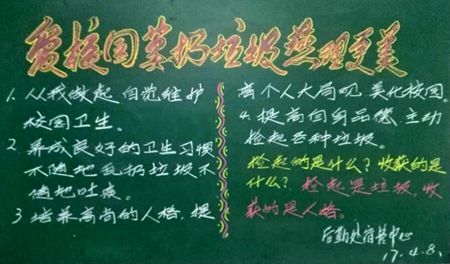 爱校园莫扔垃圾燕理更美
1. 从我做起,自觉维护
校园卫生。
2. 养成良好的卫生习惯
不随地乱扔垃圾不
随地吐痰。
3 培养高尚的人格,提
高个人大局观,美化校园。
4. 提高自身品德,主动
捡起各种垃圾。
捡起的是什么?收获的是
什么?捡起是垃圾,收
获的是人格。
后勤处宿管中心
17.4.8.